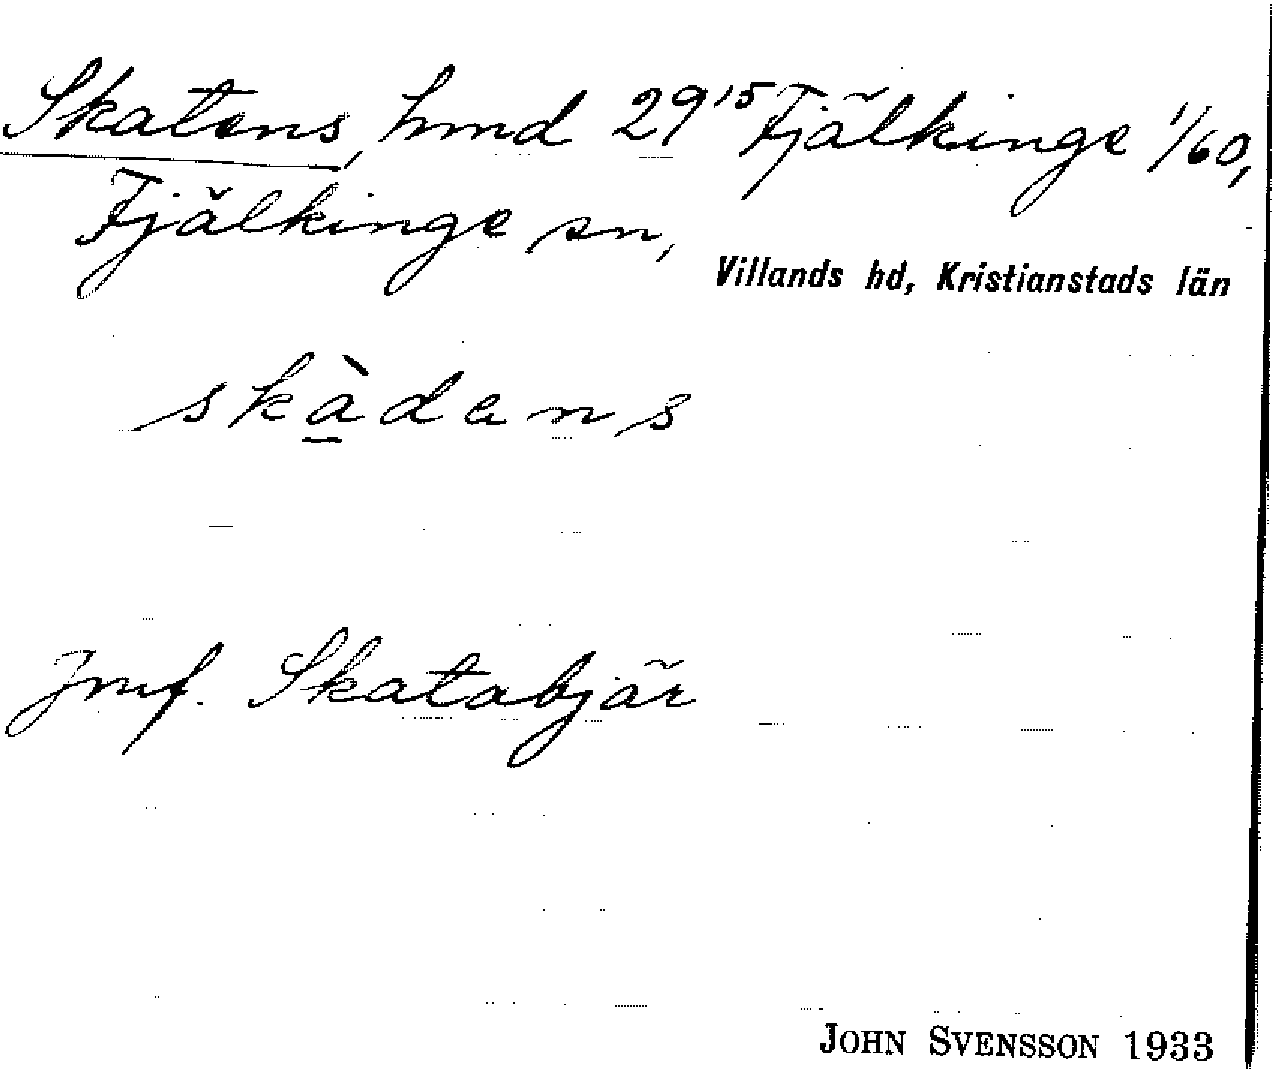 Skatens, hmd 29¹⁵ Fjälkinge 1/60,
Fjälkinge sn,
Villands hd, Kristianstads län
skàdens
Jmf. Skatabjär
JOHN SVENSSON 1933